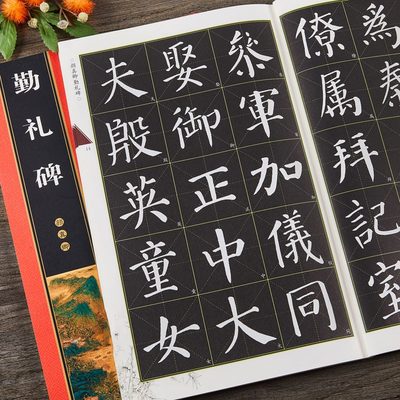 為秦
僚属拜記室
叅軍加儀同
娶御正中大
夫殷英童女
颜真卿勤礼碑
14
勤礼碑
颜真卿